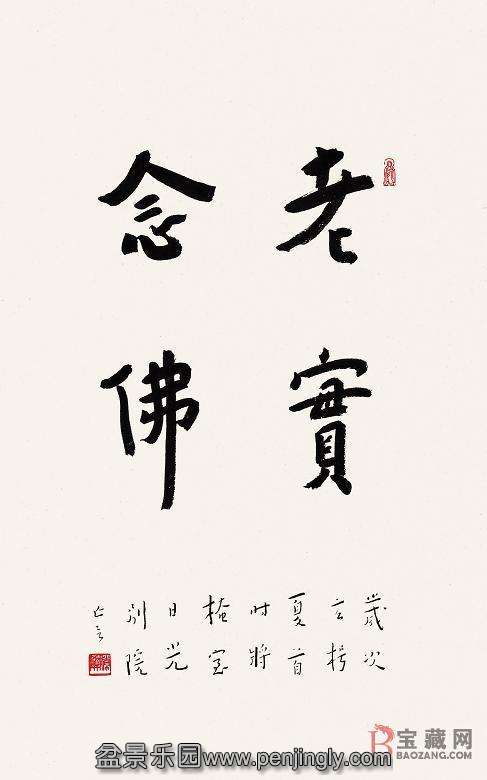 老實
念佛
歲次
玄枵
夏首
時將
掩室
日光
別院
亡言
宝藏网
BAOZANG.COM
盆景乐园www.penjingly.com